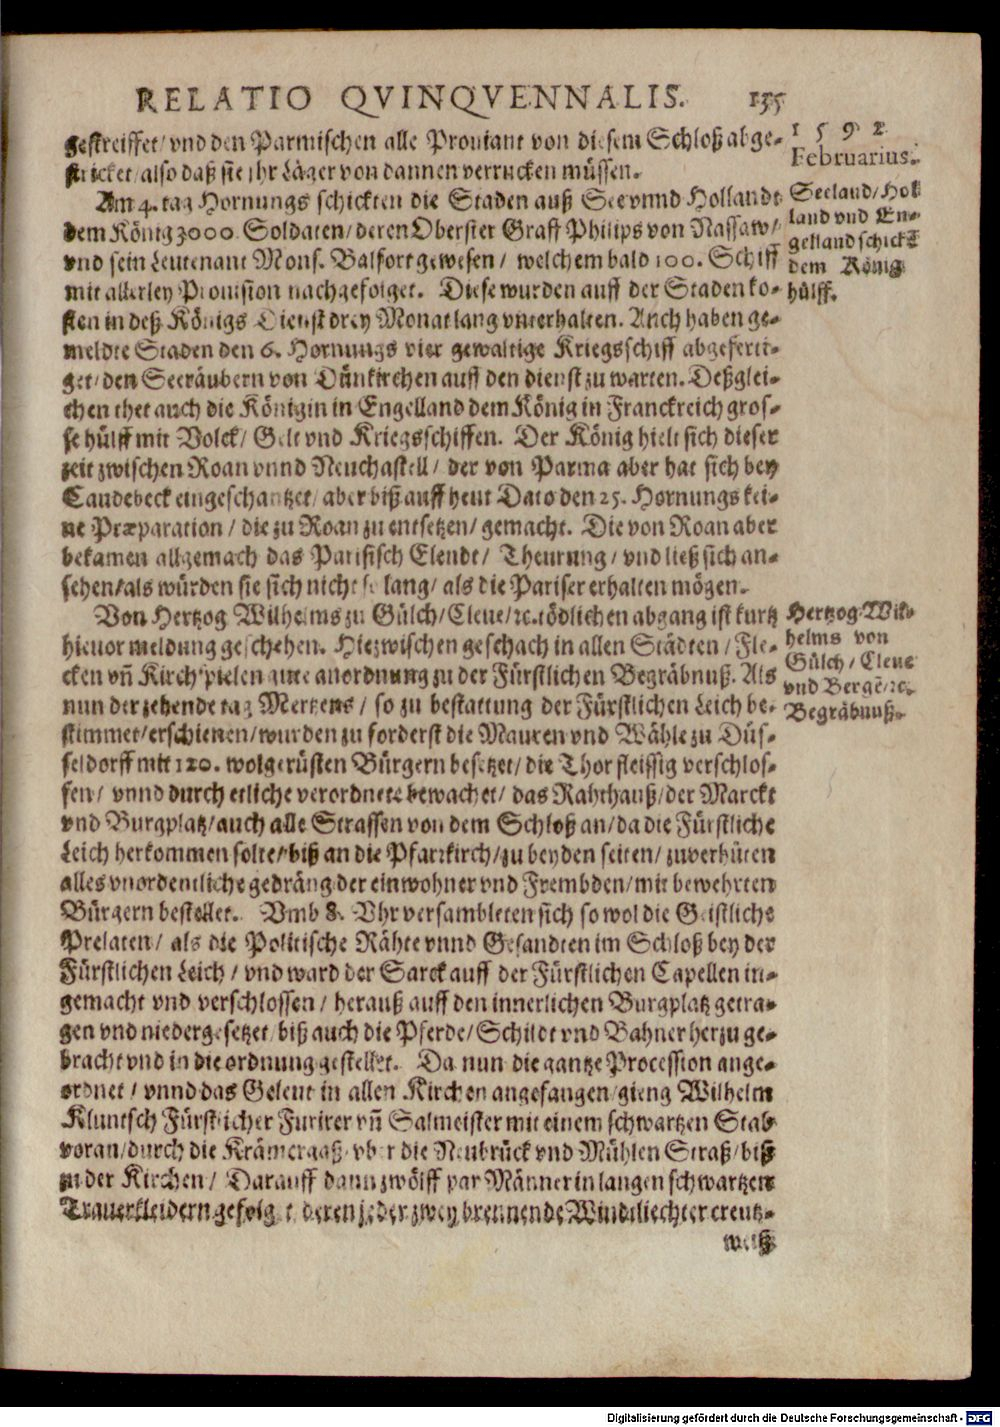 RELATIO QVINQVENNALIS. 155
1592
Februarius.
gestreiffet/ vnd den Parmischen alle Prouiant von diesem Schloß abge-
stricket/ also daß sie jhr Läger von dannen verrucken müssen.
Am 4. tag Hornungs schickten die Staden auß See vnnd Hollandt
dem König 3000. Soldaten/ deren Oberster Graff Philips von Nassaw/
vnd sein Leutenant Mons. Balfort gewesen/ welchem bald 100. Schiff
mit allerley Prouision nachgefolget. Diese wurden auff der Staden ko-
sten in deß Königs Dienst drey Monat lang vnterhalten. Auch haben ge-
meldte Staden den 6. Hornungs vier gewaltige Kriegsschiff abgeferti-
get/ den Seeräubern von Dünkirchen auff den dienst zu warten. Deßglei-
chen thet auch die Königin in Engelland dem König in Franckreich gros-
se hülff mit Volck/ Gelt vnd Kriegsschiffen. Der König hielt sich dieser
zeit zwischen Roan vnnd Neuchastell/ der von Parma aber hat sich bey
Caudebeck eingeschantzet/ aber biß auff heut Dato den 25. Hornungs kei-
ne Præparation/ die zu Roan zu entsetzen/ gemacht. Die von Roan aber
bekamen allgemach das Parisisch Elendt/ Theurung/ vnd ließ sich an-
sehen/ als würden sie sich nicht so lang/ als die Pariser erhalten mögen.
Seeland/ Hol
land vnd En-
gelland schickt
dem König
hülff.
Von Hertzog Wilhelms zu Gülch/ Cleue/ ꝛc. tödlichen abgang ist kurtz
hieuor meldung geschehen. Hiezwischen geschach in allen Städten/ Fle-
cken vn̄ Kirchspielen gute anordnung zu der Fürstlichen Begräbnuß. Als
nun der zehende tag Mertzens/ so zu bestattung der Fürstlichen Leich be-
stimmet/ erschienen/ wurden zu forderst die Mauren vnd Wähle zu Düs-
seldorff mit 120. wolgerüsten Bürgern besetzet/ die Thor fleissig verschlos-
sen/ vnnd durch etliche verordnete bewachet/ das Rahthauß/ der Marckt
vnd Burgplatz/ auch alle Strassen von dem Schloß an/ da die Fürstliche
Leich herkommen solte/ biß an die Pfarrkirch/ zu beyden seiten/ zuverhüten
alles vnordentliche gedräng der einwohner vnd Frembden/ mit bewehrten
Bürgern bestellet. Vmb 8. Vhr versambleten sich so wol die Geistliche
Prelaten/ als die Politische Rähte vnnd Gesandten im Schloß bey der
Fürstlichen Leich/ vnd ward der Sarck auff der Fürstlichen Capellen in-
gemacht vnd verschlossen/ herauß auff den innerlichen Burgplatz getra-
gen vnd niedergesetzet/ biß auch die Pferde/ Schildt vnd Bahner herzu ge-
bracht vnd in die ordnung gestellet. Da nun die gantze Procession ange-
ordnet/ vnnd das Geleut in allen Kirchen angefangen/ gieng Wilhelm
Kluntsch Fürstlicher Furirer vn̄ Salmeister mit einem schwartzen Stab
voran/ durch die Krämergaß/ vber die Neubrück vnd Mühlen Straß/ biß
zu der Kirchen/ Darauff dann zwölff par Männer in langen schwartzen
Trauerkleidern gefolget/ deren jeder zwey brennende Windtliechter creutz-
weiß
Hertzog Wil-
helms von
Gülch/ Cleue
vnd Bergē/ ꝛc.
Begräbnuß.
Digitalisierung gefördert durch die Deutsche Forschungsgemeinschaft - DFG